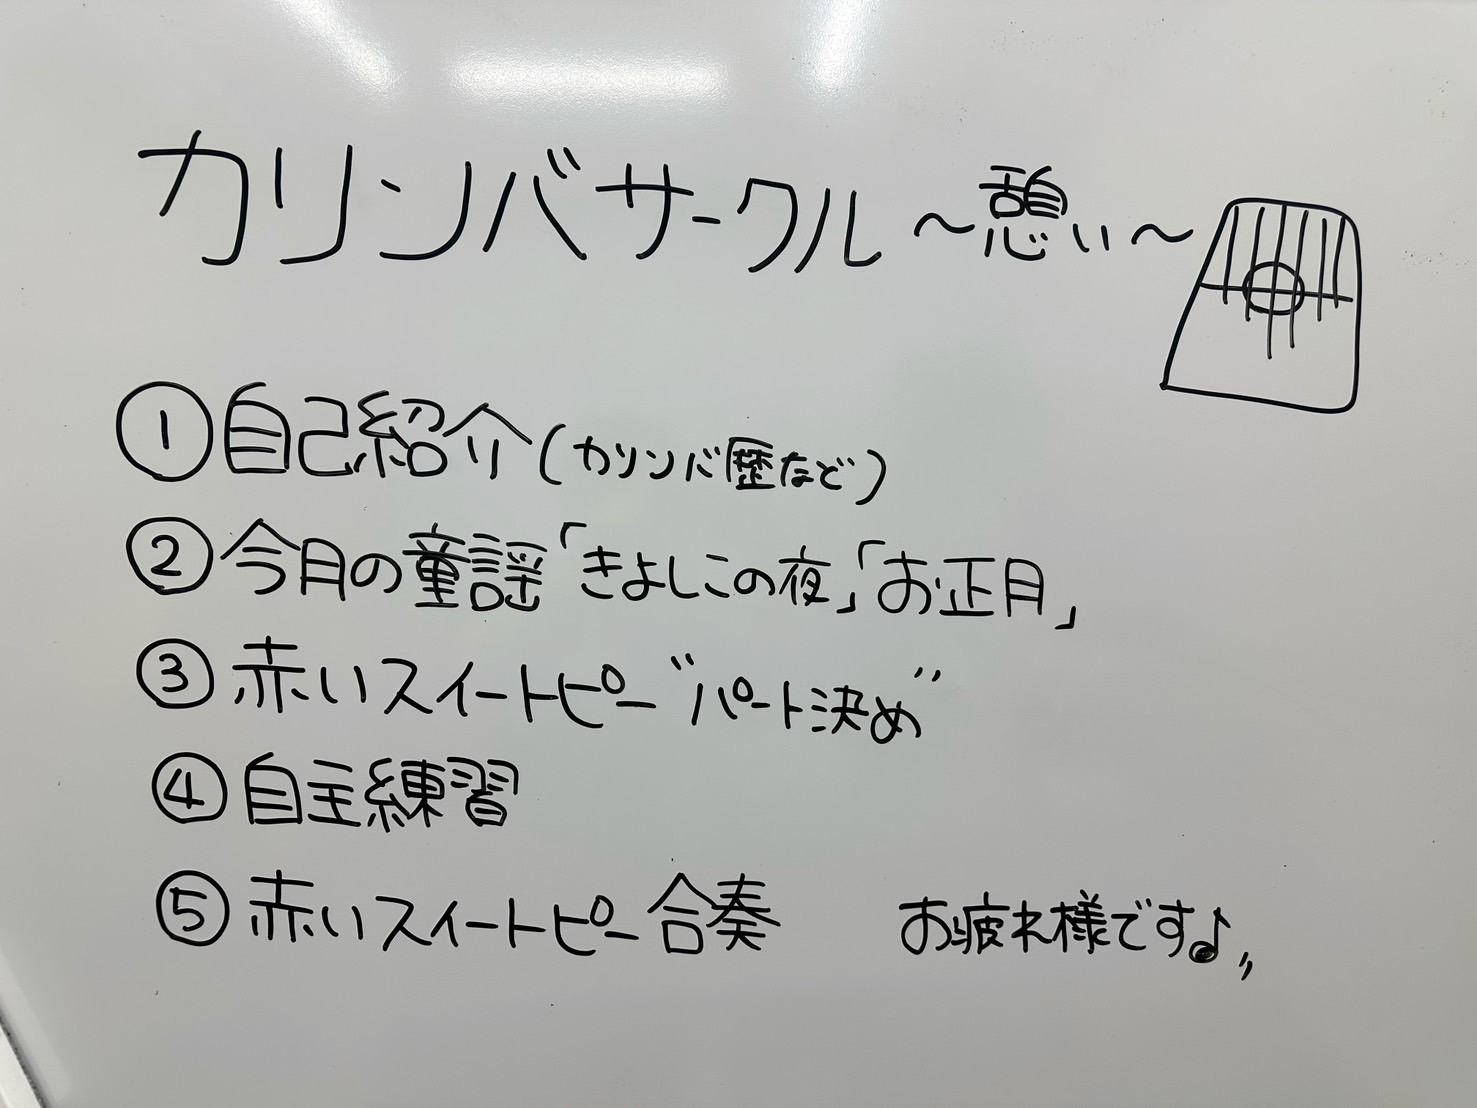 カリンバサークル ～憩い～
① 自己紹介(カリンバ歴など)
② 今月の童謡「きよしこの夜」「お正月」
③ 赤いスイートピー "パート決め"
④ 自主練習
⑤ 赤いスイートピー合奏 お疲れ様です♪〃